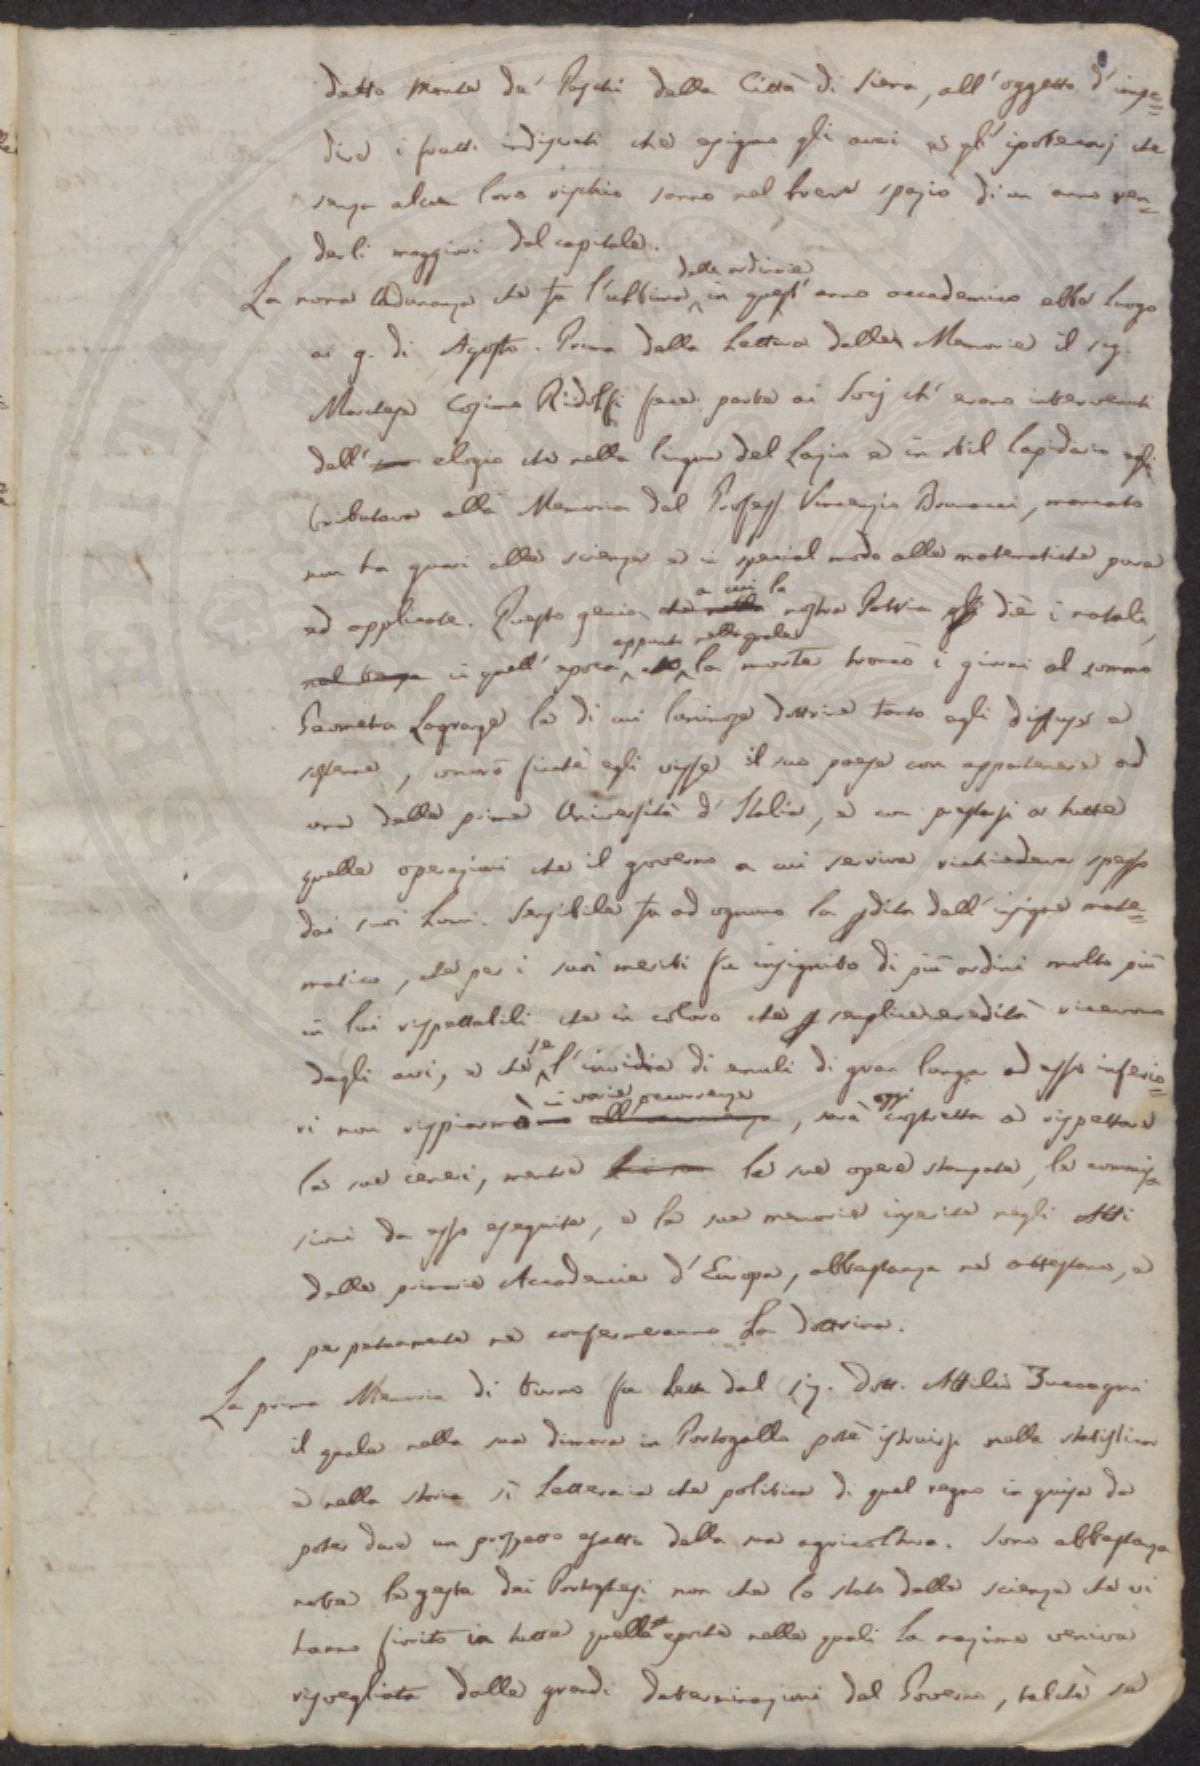 detto Monte de' Paschi della Città di Siena, all'oggetto d'impe=
dire i frutti indiscreti che esigono gli avari e gl'ipotecarj che
senza alcun loro rischio sanno nel breve spazio di un anno ren=
derli maggiori del capitale.
La nona Adunanza che fu l'ultima delle ordinarie in quest'anno accademico ebbe luogo
ai 9. di Agosto. Prima della Lettura delle Memorie il sig.
Marchese Cosimo Ridolfi fece parte ai Socj ch'erano intervenuti
dell' elogio che nella lingua del Lazio e in stil lapidario egli
tributava alla Memoria del Profess. Vincenzio Brunacci, mancato
non ha guari alle scienze e in special modo alle matematiche pure
ed applicate. Questo genio che nella a cui la nostra Patria diè i natali,
nel tempo in quell'epoca appunto nella quale la morte troncò i giorni al sommo
Geometra Lagrange la di cui luminosa dottrina tanto egli diffuse e
sostenne, onorò finchè egli visse il suo paese con appartenere ad
una delle prime Università d'Italia, e con prestarsi a tutte
quelle operazioni che il governo a cui serviva richiedeva spesso
dai suoi lumi. Sensibile fu ad ognuno la pdita dell'insigne mate=
matico, che per i suoi meriti fu insignito di più ordini molto più
in lui rispettabili che in coloro che p semplice eredità ricevono
dagli avi, e che se l'invidia di emuli di gran lunga ad esso inferio=
ri non risparmiò in varie occorrenze, sarà oggi costretta a rispettare
le sue ceneri, mentre le sue opere stampate, le commis
sioni da esso eseguite, e le sue memorie inserite negli Atti
delle primarie Accademie d'Europa, abbastanza ne attestano, e
perpetuamente ne confermeranno la dottrina.
La prima Memoria di turno fu letta dal sig. Dott. Attilio Zuccagni
il quale nella sua dimora in Portogallo potè istruirsi nella statistica
e nella storia sì letteraria che politica di quel regno in guisa da
poter dare un prospetto esatto della sua agricoltura. Sono abbastanza
note le gesta dei Portoghesi non che lo stato delle scienze che vi
hanno fiorito in tutte quelle epoche nelle quali la nazione veniva
risvegliata dalle grandi determinazioni del Governo, talchè se